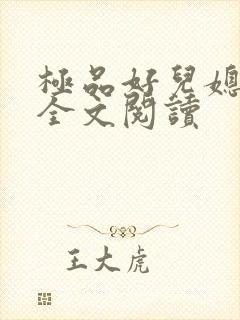 極品好兒媳
全文閱讀
王大虎